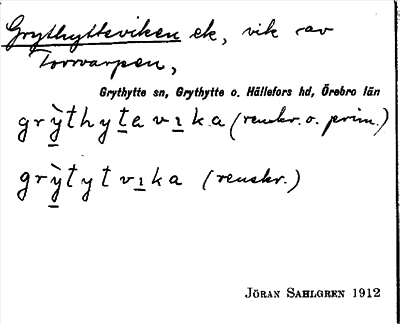 Grythytteviken ek, vik av
Torrvarpen,
Grythytte sn, Grythytte o. Hällefors hd, Örebro län
grỳ̲thyt̲a vı̲ka (renskr. o. prim.)
grỳ̲tyt vı̲ka (renskr.)
JÖRAN SAHLGREN 1912